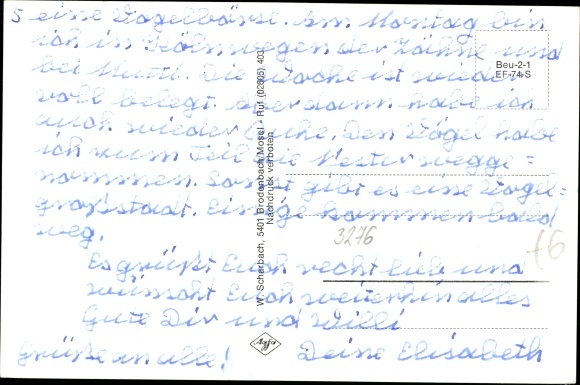 5 eine Vogelbörse. Am Montag bin
ich in Köln wegen der Zähne und
bei Mutti. Die Woche ist wieder
voll belegt. Aber dann habe ich
auch wieder Ruhe. Den Vögel habe
ich zum Teil die Nester wegge=
nommen. Sonst gibt es eine Vogel=
großstadt. Einige kommen bald
weg.
Es grüßt Euch recht lieb und
wünscht Euch weiterhin alles
Gute Dir und Willi
Grüße an alle! Deine Elisabeth
Beu-2-1
EF-74 S
W. Scharbach, 5401 Brodenbach/Mosel - Ruf (02605) 403
Nachdruck verboten
3276
Agfa